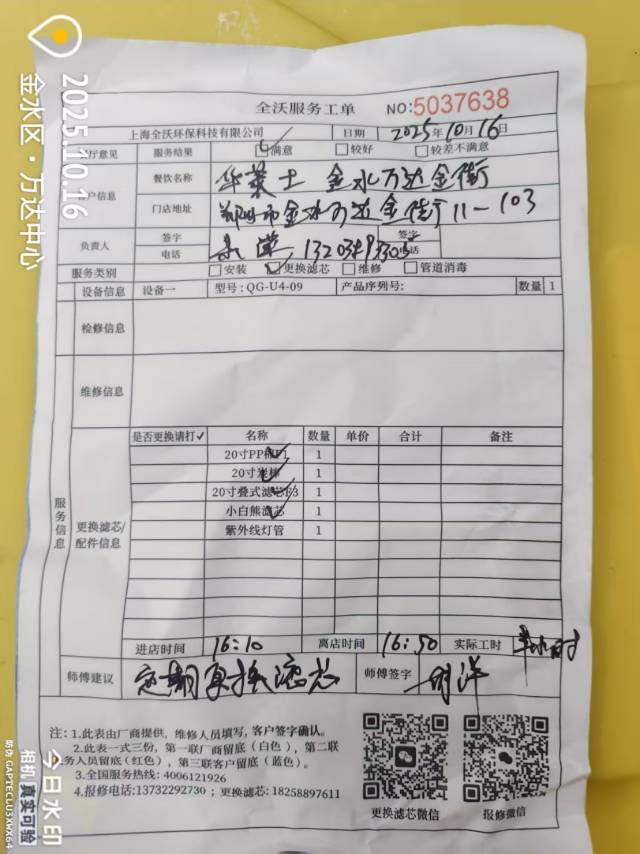 全沃服务工单 NO:5037638
上海全沃环保科技有限公司 日期 2025年10月16日
厅意见 服务结果 满意 较好 较差不满意
户信息 餐饮名称 华莱士 金水万达金街
门店地址 郑州市金水万达金街11-103
负责人 签字 电话 签字 电话
服务类别 安装 更换滤芯 维修 管道消毒
设备信息 设备一 型号:QG-U4-09 产品序列号: 数量 1
检修信息
维修信息
服务信息
更换滤芯/配件信息
是否更换请打✓ 名称 数量 单价 合计 备注
20寸PP棉F1 1
20寸 1
20寸叠式滤芯F3 1
小白熊滤芯 1
紫外线灯管 1
进店时间 16:10 离店时间 16:50 实际工时 半小时
师傅建议 定期更换滤芯 师傅签字
注: 1.此表由厂商提供, 维修人员填写, 客户签字确认。
2.此表一式三份, 第一联厂商留底(白色), 第二联
务人员留底(红色), 第三联客户留底(蓝色)。
3.全国服务热线: 4006121926
4.报修电话:13732292730 ; 更换滤芯: 18258897611
更换滤芯微信 报修微信
2025.10.16
金水区·万达中心
今日水印
相机 真实可验
防伪 GAPTECLU3XWX64